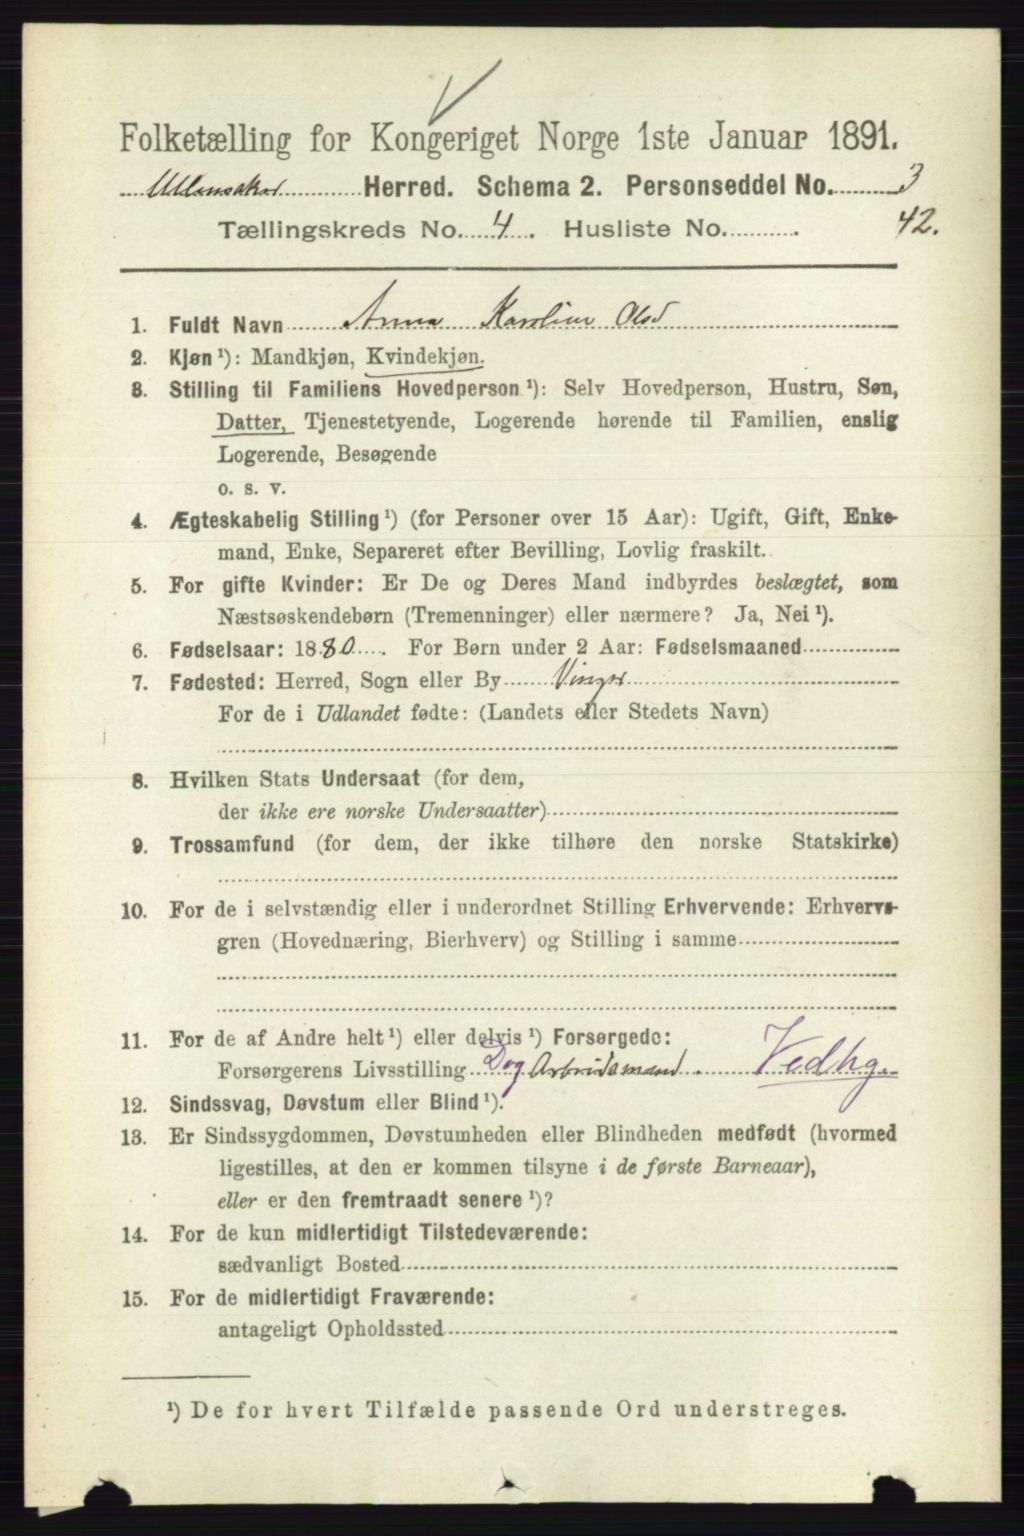 Folketælling for Kongeriget Norge 1ste Januar 1891.
Ullensaker Herred. Schema 2. Personseddel No. 3
Tællingskreds No. 4. Husliste No. 42.
1. Fuldt Navn Anna Karoline Olsd
2. Kjøn ¹): Mandkjøn, Kvindekjøn.
3. Stilling til Familiens Hovedperson ¹): Selv Hovedperson, Hustru, Søn,
Datter, Tjenestetyende, Logerende hørende til Familien, enslig
Logerende, Besøgende
o. s. v.
4. Ægteskabelig Stilling ¹) (for Personer over 15 Aar): Ugift, Gift, Enke-
mand, Enke, Separeret efter Bevilling, Lovlig fraskilt.
5. For gifte Kvinder: Er De og Deres Mand indbyrdes beslægtet, som
Næstsøskendebørn (Tremenninger) eller nærmere? Ja, Nei ¹).
6. Fødselsaar: 1880. For Børn under 2 Aar: Fødselsmaaned
7. Fødested: Herred, Sogn eller By Vinger
For de i Udlandet fødte: (Landets eller Stedets Navn)
8. Hvilken Stats Undersaat (for dem,
der ikke ere norske Undersaatter)
9. Trossamfund (for dem, der ikke tilhøre den norske Statskirke)
10. For de i selvstændig eller i underordnet Stilling Erhvervende: Erhvervs-
gren (Hovednæring, Bierhverv) og Stilling i samme
11. For de af Andre helt ¹) eller delvis ¹) Forsørgede:
Forsørgerens Livsstilling Dag Arbeidsmand. Vedhg.
12. Sindssvag, Døvstum eller Blind ¹).
13. Er Sindssygdommen, Døvstumheden eller Blindheden medfødt (hvormed
ligestilles, at den er kommen tilsyne i de første Barneaar),
eller er den fremtraadt senere ¹)?
14. For de kun midlertidigt Tilstedeværende:
sædvanligt Bosted
15. For de midlertidigt Fraværende:
antageligt Opholdssted
¹) De for hvert Tilfælde passende Ord understreges.